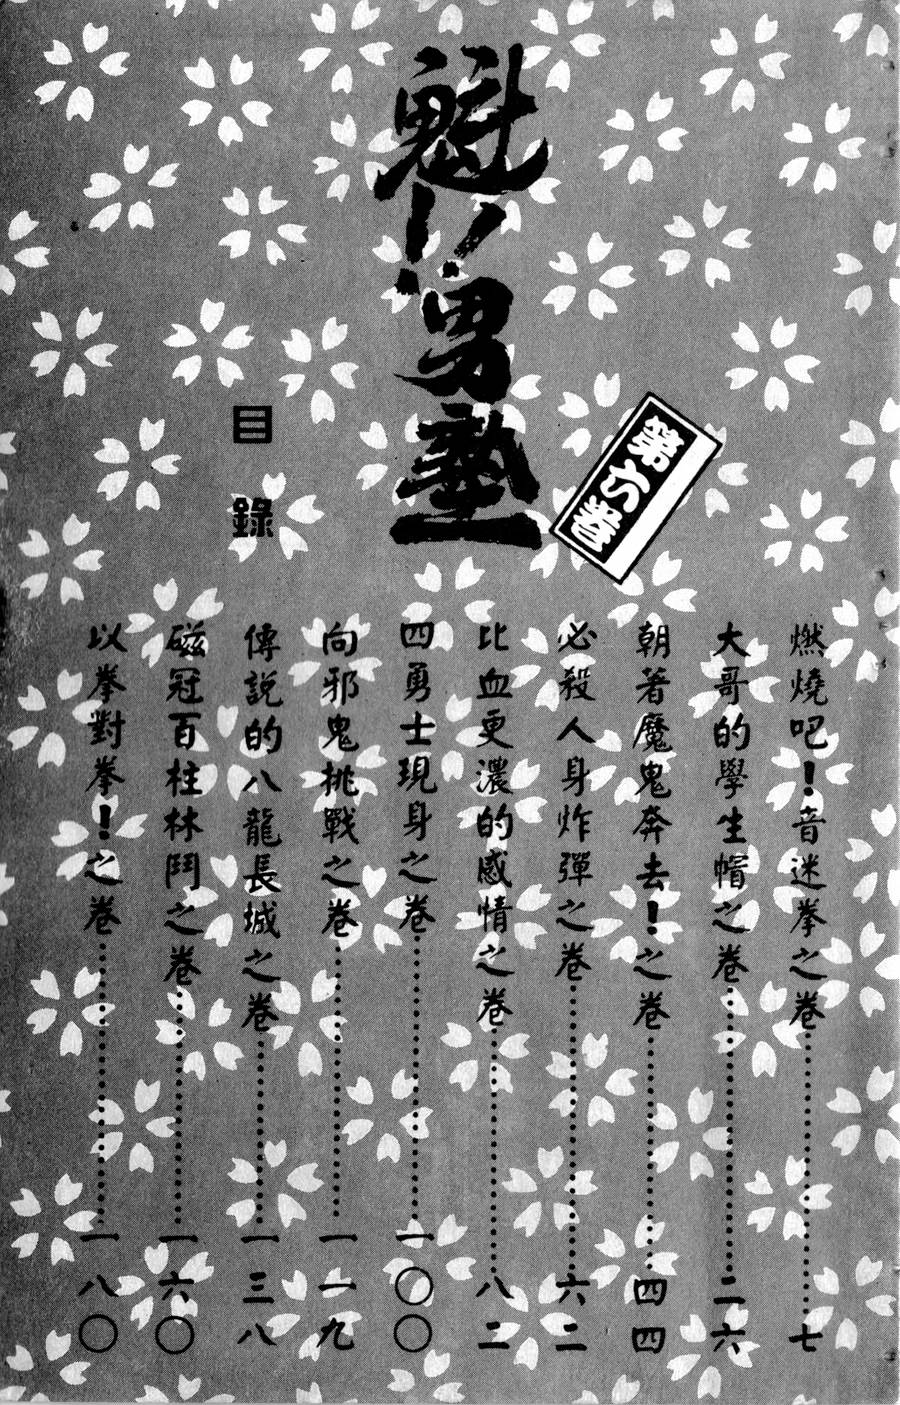 魁!!男塾
第六卷
目錄
燃燒吧！音迷拳之卷……七
大哥的學生帽之卷……二六
朝著魔鬼奔去！之卷……四四
必殺人身炸彈之卷……六二
比血更濃的感情之卷……八二
四勇士現身之卷……一〇〇
向邪鬼挑戰之卷……一一九
傳說的八龍長城之卷……一三八
磁冠百柱林鬥之卷……一六〇
以拳對拳！之卷……一八〇